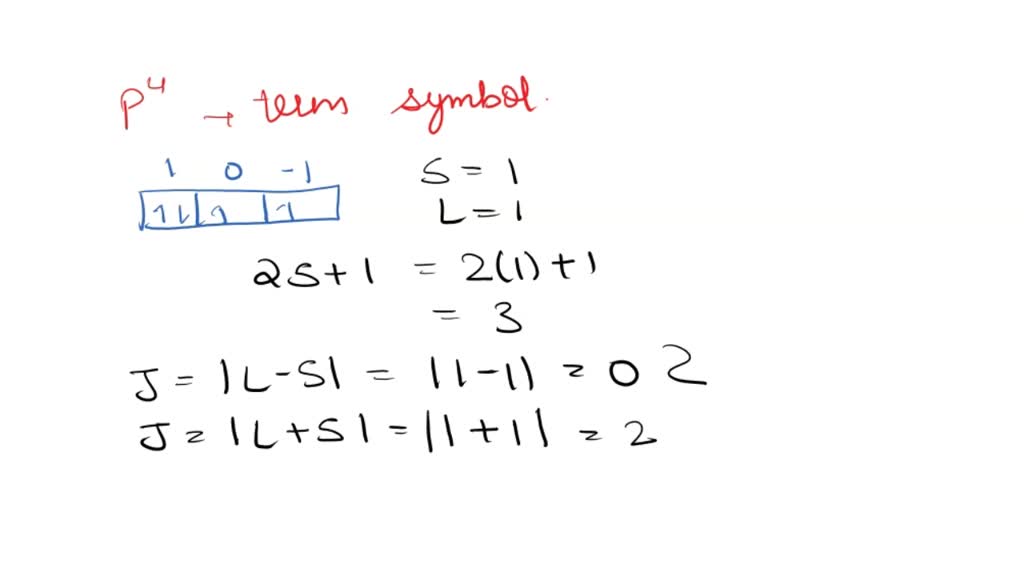 p⁴ → term symbol.
1 0 -1
1l 1 1
S = 1
L = 1
2S+1 = 2(1)+1
= 3
J = |L-S| = |1-1| = 0 2
J = |L+S| = |1+1| = 2